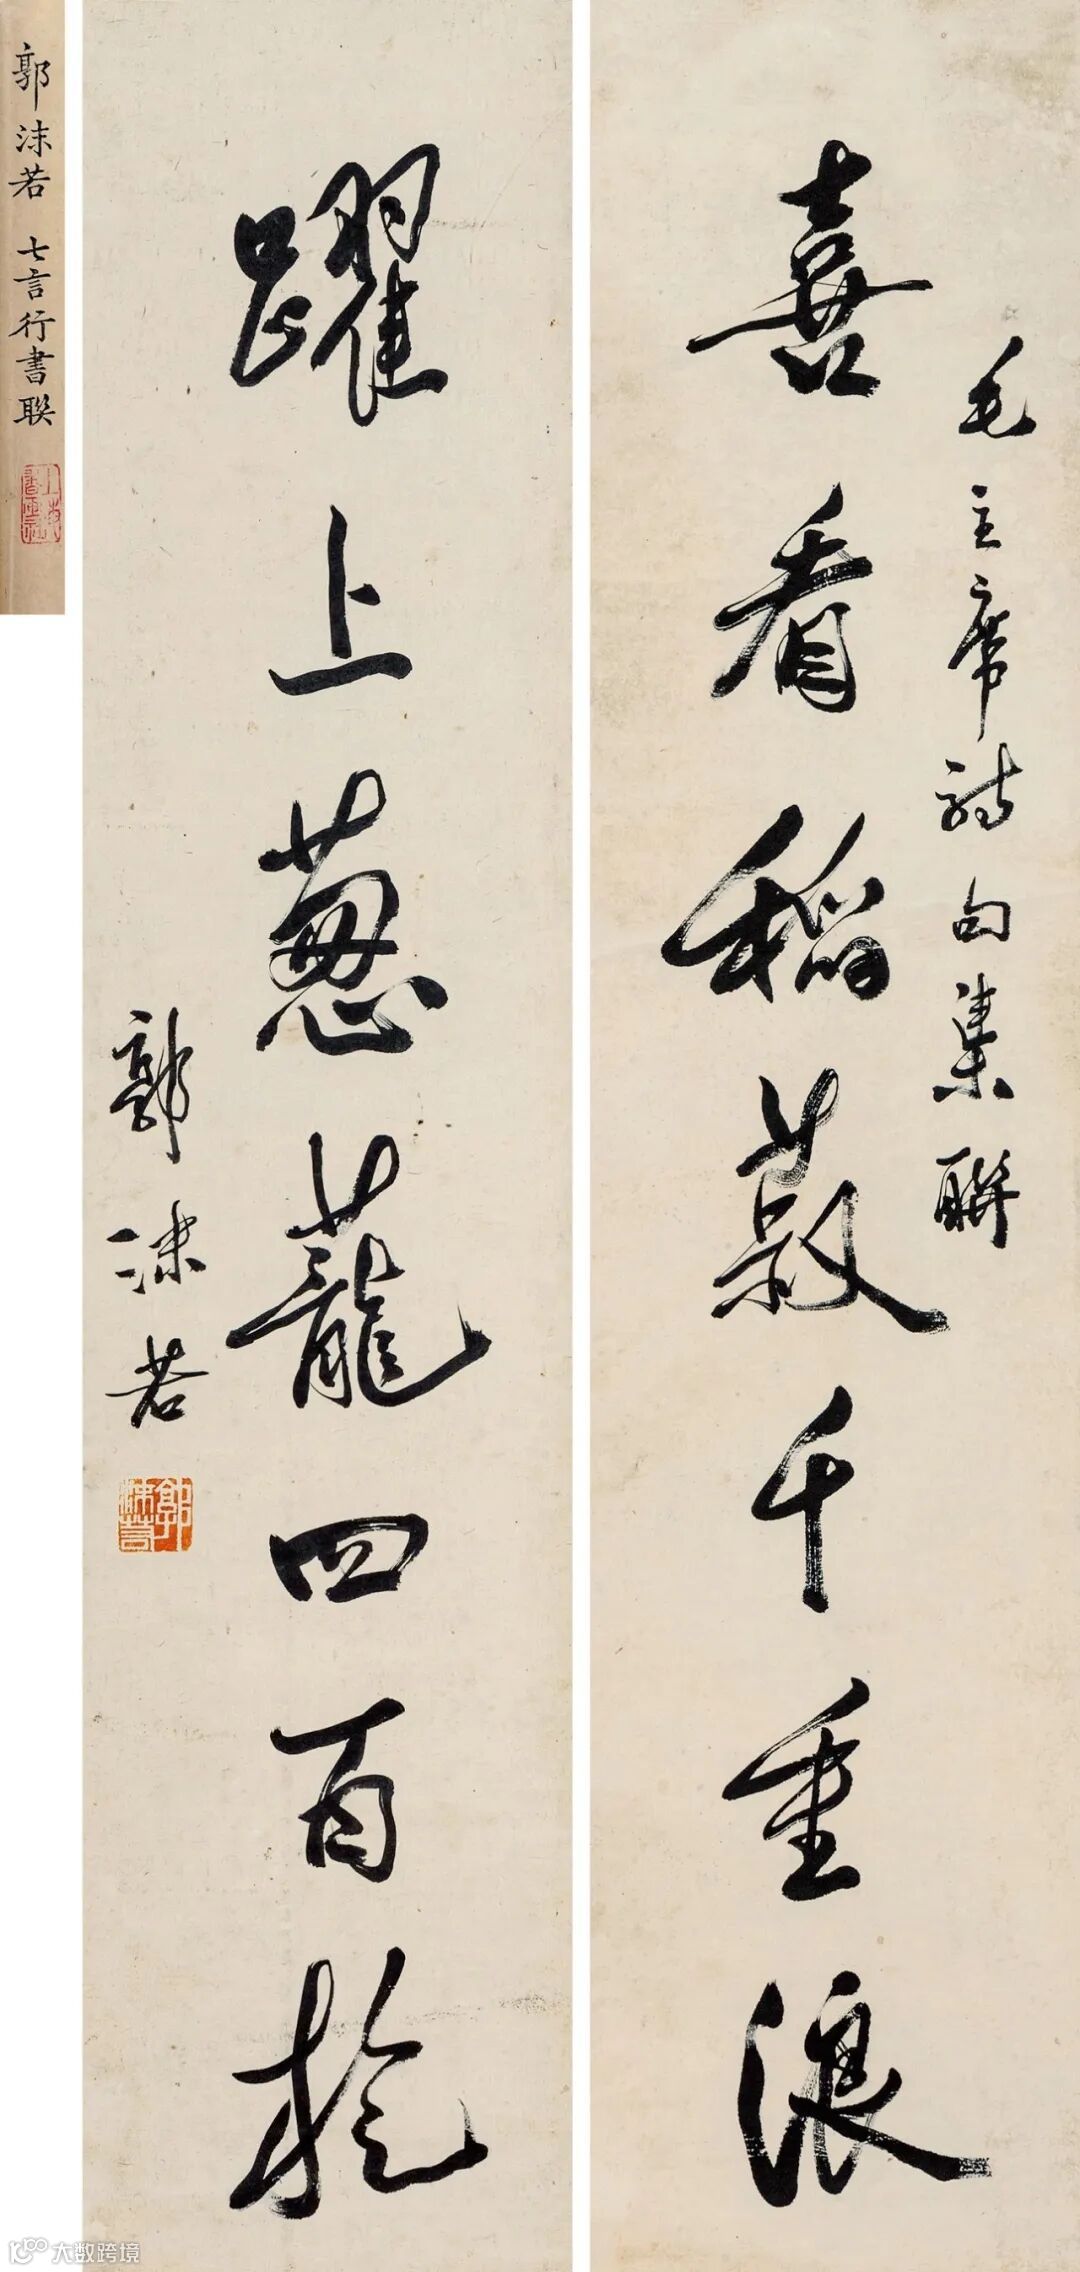 毛主席詩句集聯
喜看稻菽千重浪
躍上蔥蘢四百旋
郭沫若
郭沫若
郭沫若 七言行書聯
大数跨境